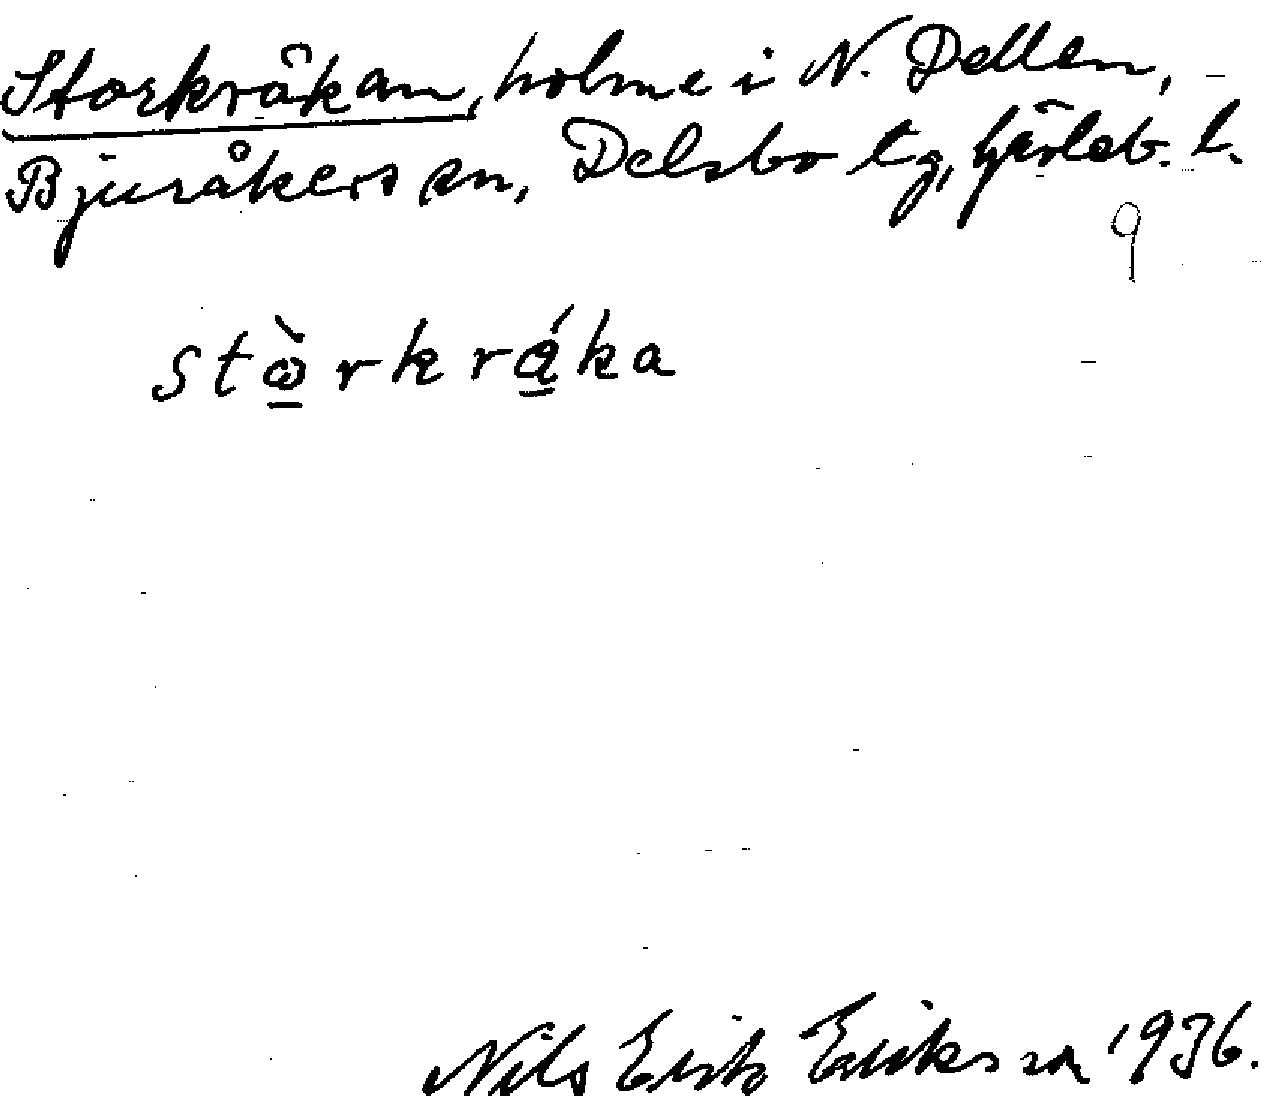 Storkråkan, holme i N. Dellen,
Bjuråkers sn, Delsbo tg, Gävleb. l.
9
stὼ̲rkrą̲́ka
Nils Erik Eriksson 1936.